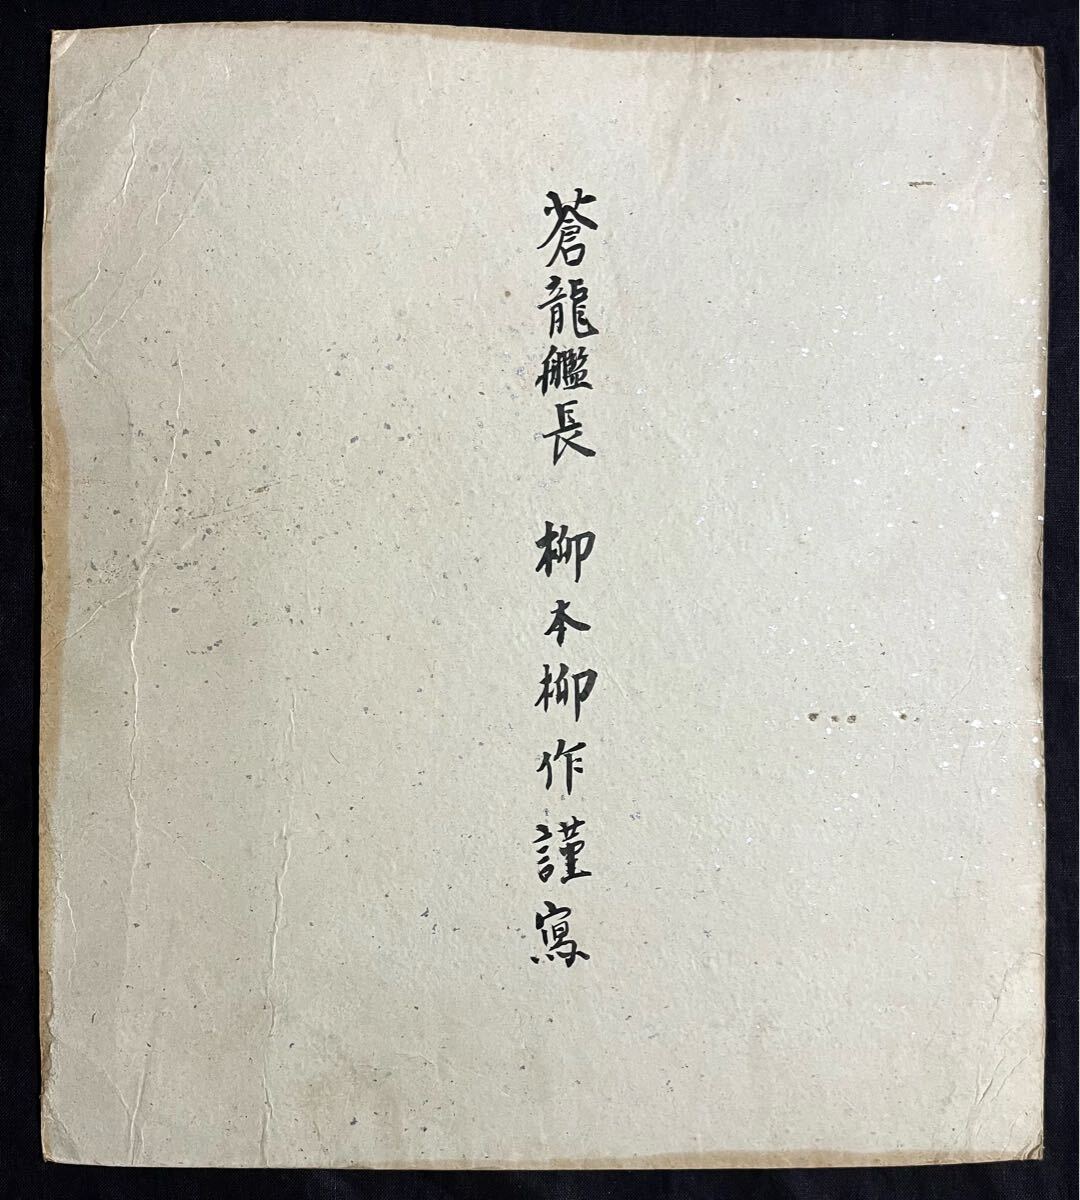 蒼龍艦長 柳本柳作謹寫